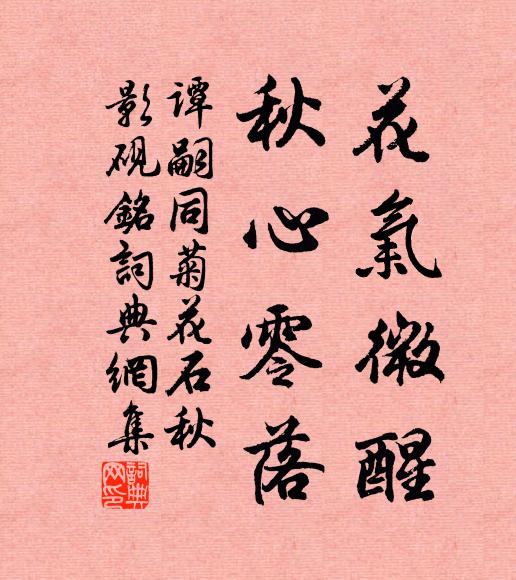 花氣微醒
秋心零落
谭嗣同菊花石秋
影硯銘詞典網集
詞典网印